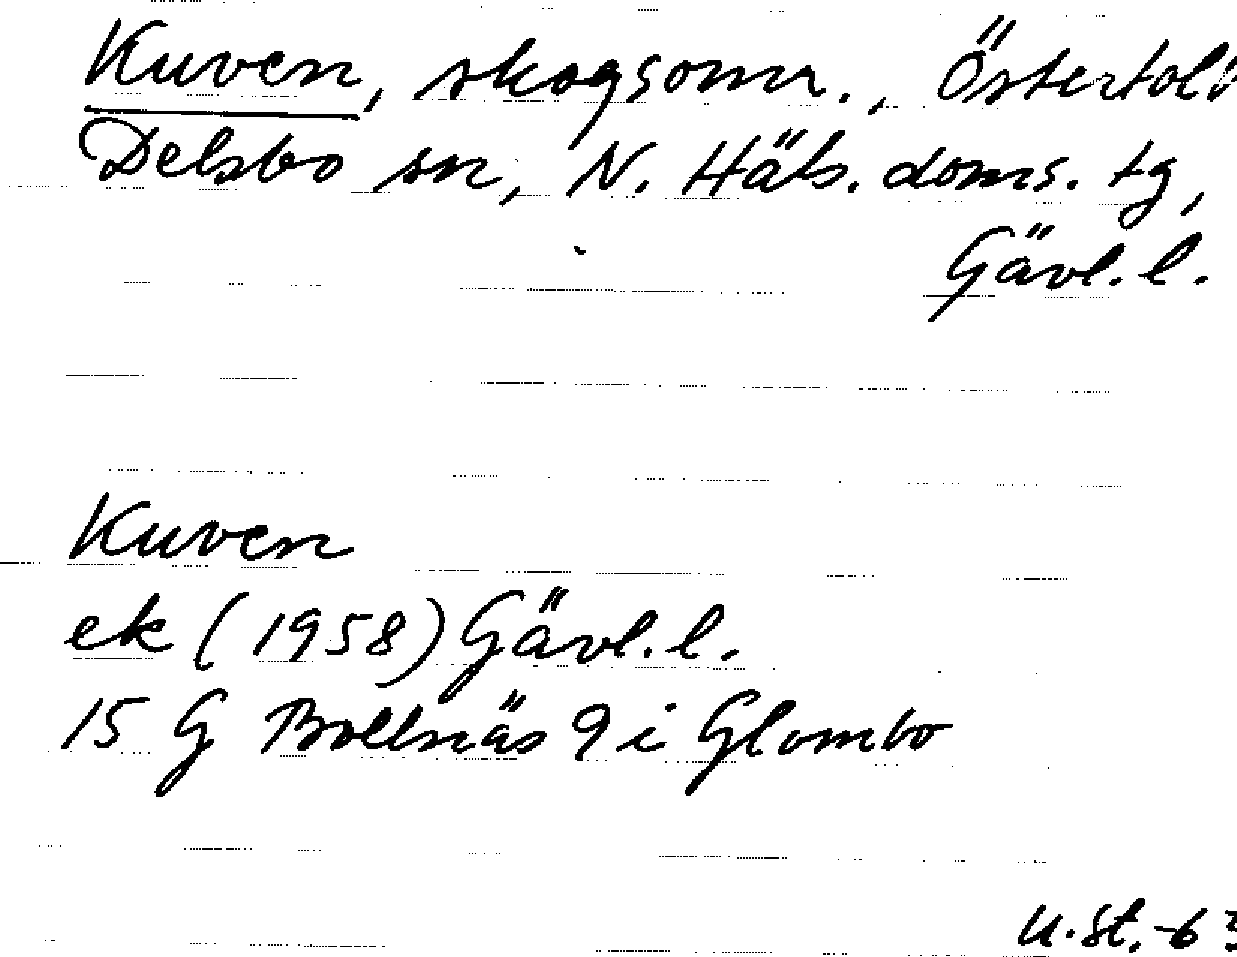 Kuven, skogsomr., Östertolv
Delsbo sn, N. Häls. doms. tg,
Gävl. l.
Kuven
ek (1958) Gävl. l.
15 G Bollnäs 9 i Glombo
U. St. -63